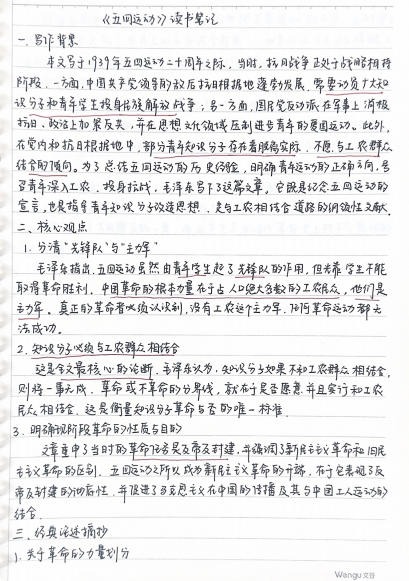 《五四运动》读书笔记
一、写作背景
本文写于1939年五四运动二十周年之际,当时,抗日战争正处于战略相持
阶段,一方面,中国共产党领导的敌后抗日根据地蓬勃发展,需要动员广大知
识分子和青年学生投身民族解放战争;另一方面,国民党反动派在军事上消极
抗日,政治上加紧反共,并在思想文化领域压制进步青年的爱国运动。此外,
在党内和抗日根据地中,部分青年知识分子存在着脱离实际、不愿与工农群众
结合的倾向。为了总结五四运动的历史经验,明确青年运动的正确方向,号
召青年深入工农,投身抗战,毛泽东写下了这篇文章。它既是纪念五四运动的
宣言,也是指导青年知识分子改造思想、走与工农相结合道路的纲领性文献。
二、核心观点
1. 分清“先锋队”与“主力军”
毛泽东指出,五四运动虽然由青年学生起了先锋队的作用,但光靠学生不能
取得革命胜利。中国革命的根本力量在于占人口绝大多数的工农民众,他们是
主力军。真正的革命者必须认识到,没有工农这个主力军,任何革命运动都无
法成功。
2. 知识分子必须与工农群众相结合
这是全文最核心的论断。毛泽东认为,知识分子如果不和工农群众相结合,
则将一事无成。革命或不革命的分界线,就在于是否愿意并且实行和工农
民众相结合。这是衡量知识分子革命与否的唯一标准
3. 明确现阶段革命的性质与目的
文章重申了当时的革命任务是反帝反封建,并强调了新民主主义革命和旧民
主主义革命的区别。五四运动之所以成为新民主主义革命的开端,在于它表现了反
帝反封建的彻底性,并促进了马克思主义在中国的传播及其与中国工人运动的
结合。
三、经典论述摘抄
1. 关于革命的力量划分
Wengu 文谷